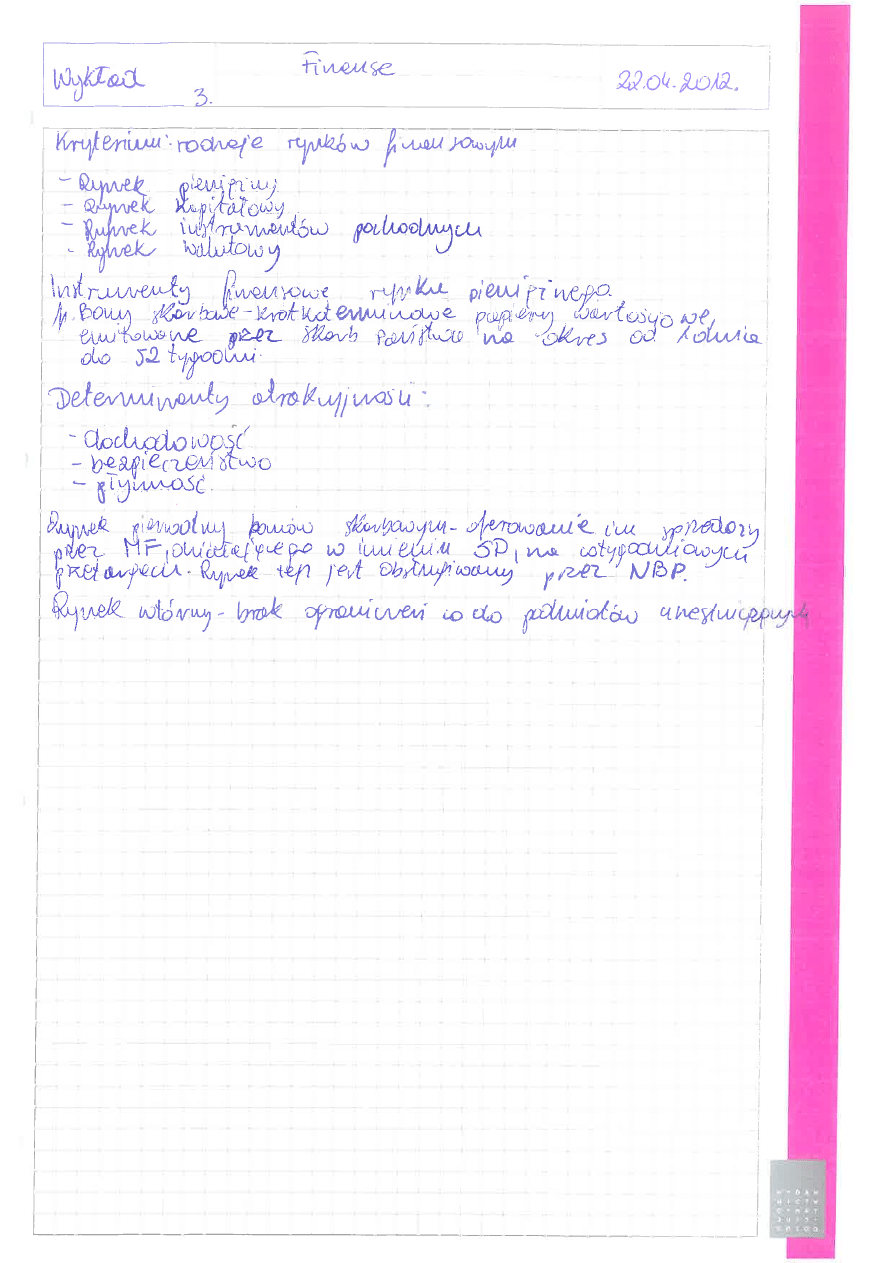 Finanse
Wykład 3. 22.04.2012.
Kryterium: rodzaje rynków finansowym
- Rynek pieniężny
- Rynek kapitałowy
- Rynek instrumentów pochodnych
- Rynek walutowy
Instrumenty finansowe rynku pieniężnego
1. Bony skarbowe - krótkoterminowe papiery wartościowe,
emitowane przez skarb państwa na okres od 1 dnia
do 52 tygodni.
Determinanty atrakcyjności:
- dochodowość
- bezpieczeństwo
- płynność.
Rynek pierwotny bonów skarbowym - oferowanie im sprzedaży
przez MF, działającego w imieniu SP, na cotygodniowych
przetargach. Rynek ten jest obsługiwany przez NBP.
Rynek wtórny - brak ograniczeń co do podmiotów uczestniczących